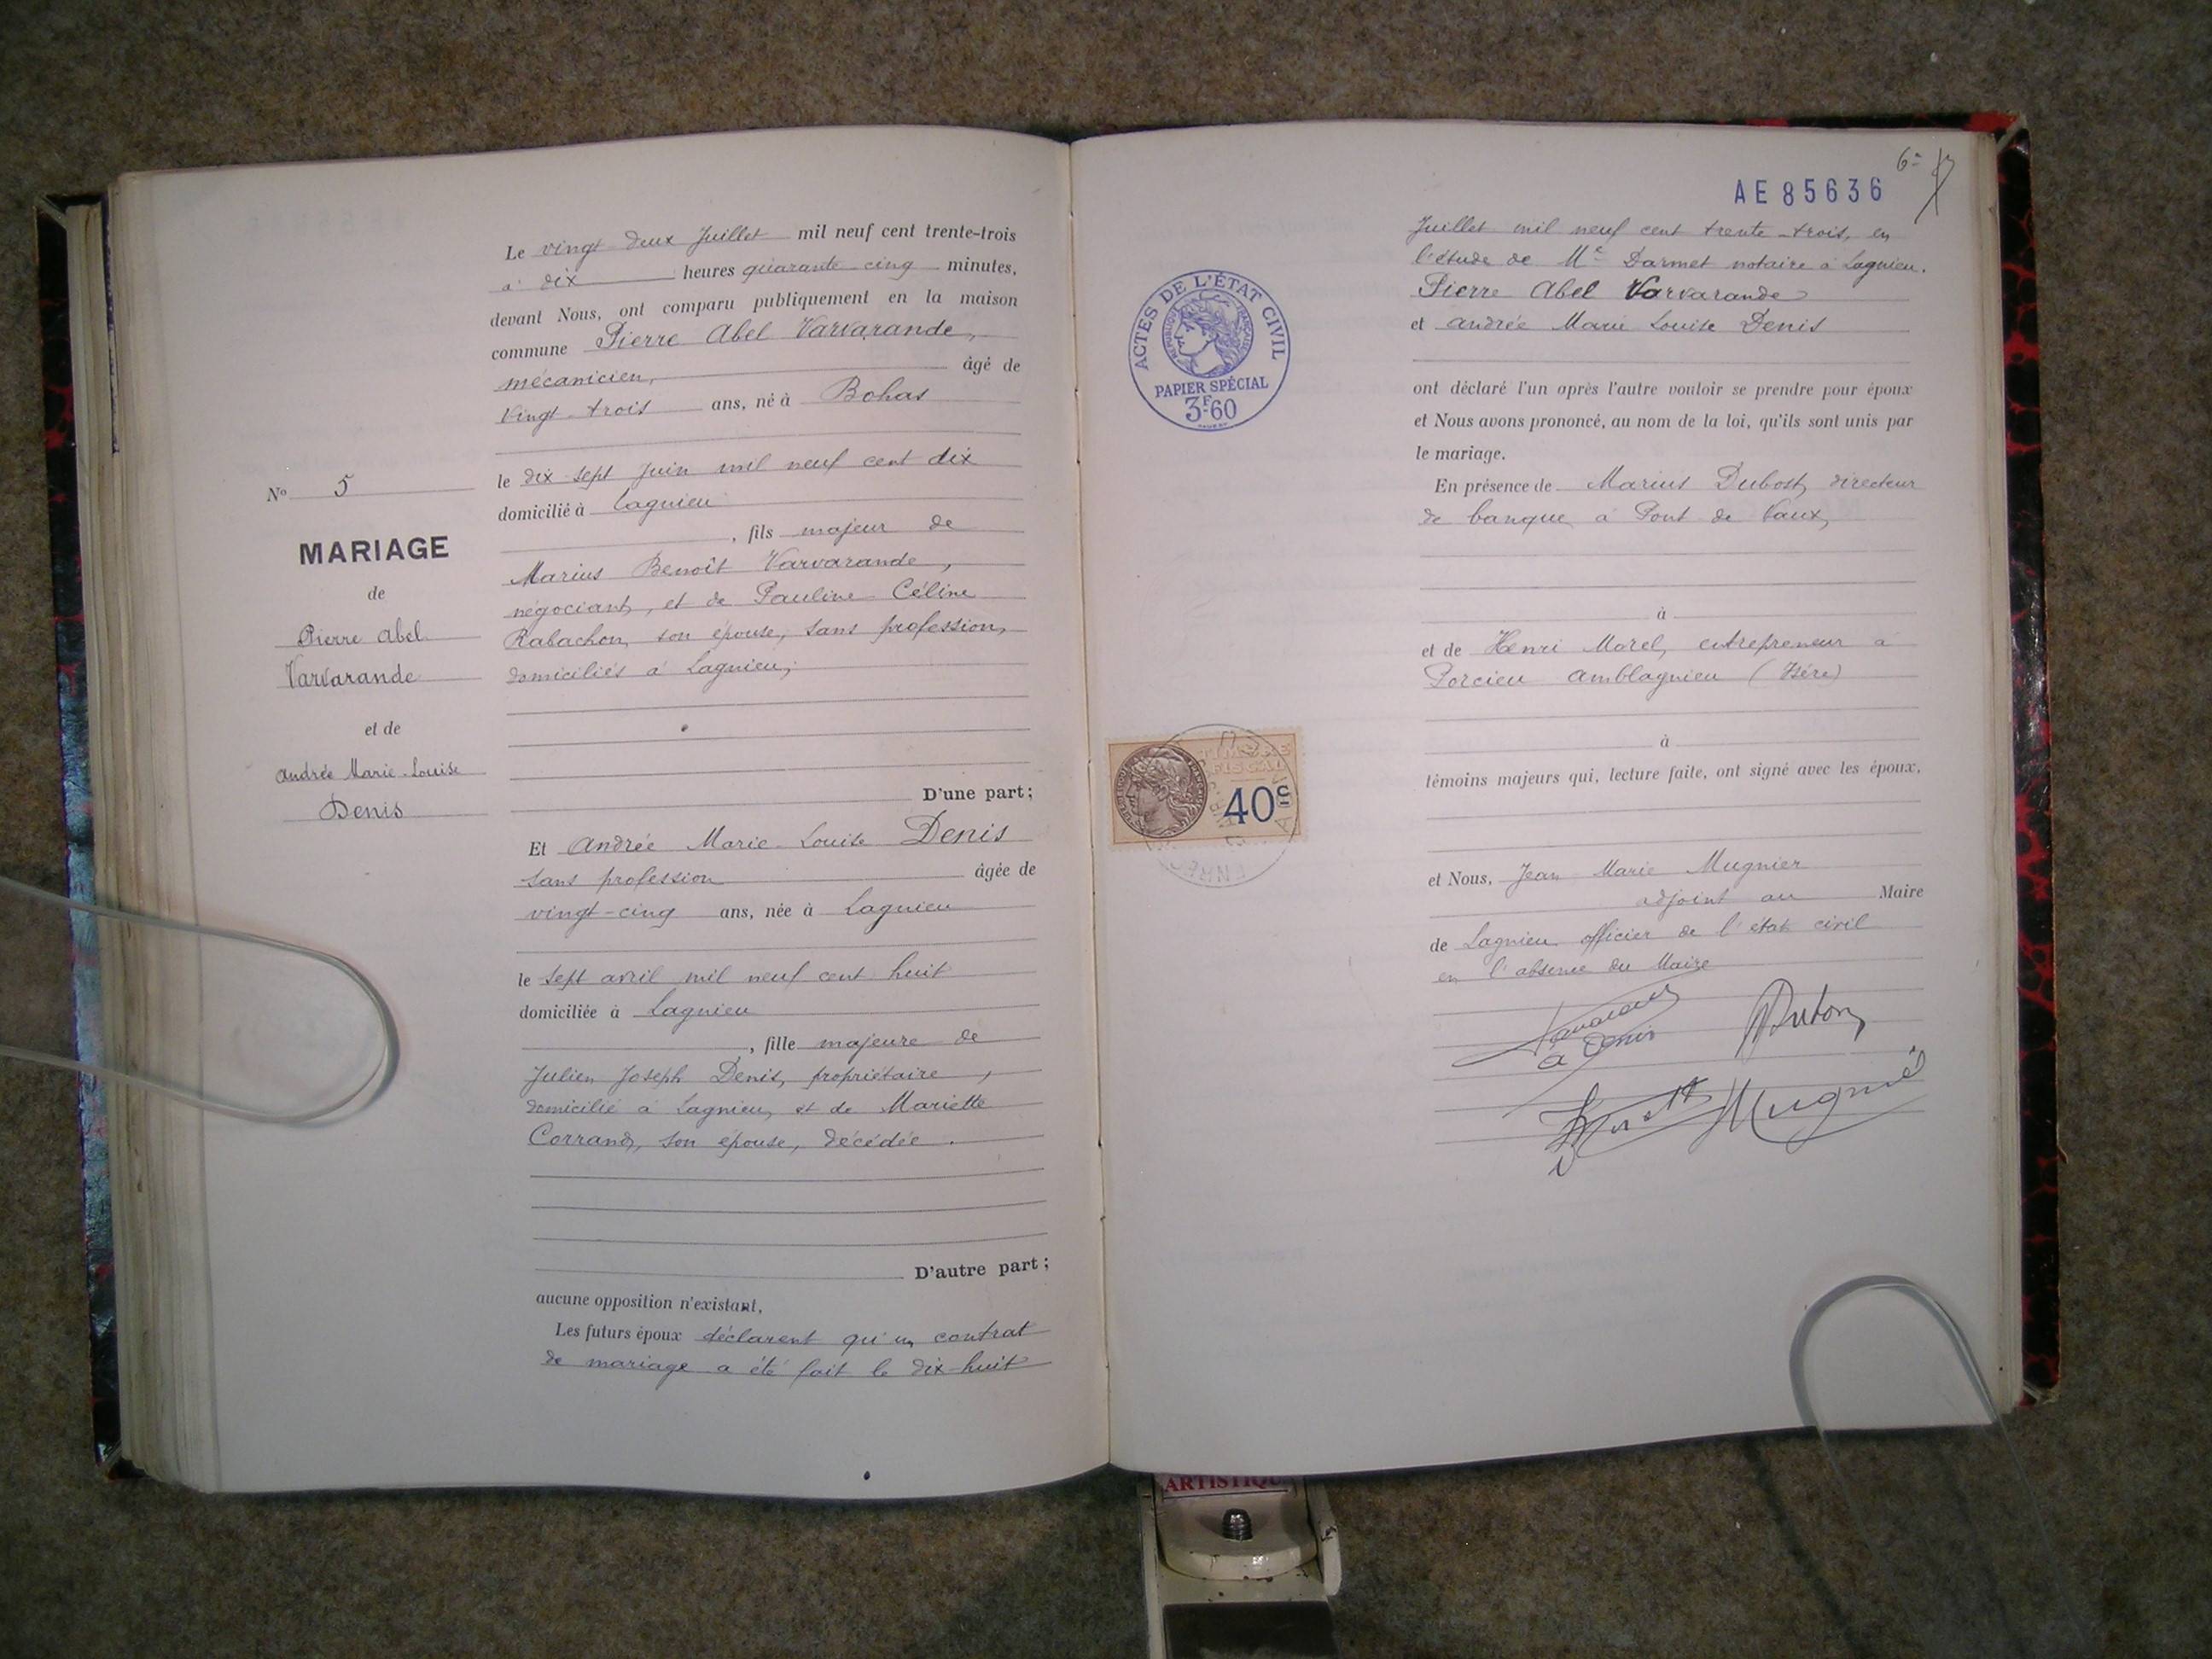 Le vingt deux Juillet mil neuf cent trente-trois
à dix heures quarante cinq minutes,
devant Nous, ont comparu publiquement en la maison
commune Pierre Abel Varvarande,
mécanicien, âgé de
vingt-trois ans, né à Bohas
le dix-sept Juin mil neuf cent dix
domicilié à Lagnieu
, fils majeur de
Marius Benoît Varvarande,
négociant, et de Pauline Céline
Rabachon, son épouse, sans profession,
domiciliés à Lagnieu;
D'une part;
Et Andrée Marie-Louise Denis
sans profession âgée de
vingt-cinq ans, née à Lagnieu
le sept avril mil neuf cent huit
domiciliée à Lagnieu
, fille majeure de
Julien Joseph Denis, propriétaire,
domicilié à Lagnieu, et de Mariette
Corrand, son épouse, décédée.
D'autre part;
aucune opposition n'existant,
Les futurs époux déclarent qu'un contrat
de mariage a été fait le dix-huit
No 5
MARIAGE
de
Pierre Abel
Varvarande
et de
Andrée Marie-Louise
Denis
6e
AE 85636
Juillet mil neuf cent trente-trois, en
l'étude de Me Darmet notaire à Lagnieu.
Pierre Abel Varvarande
et Andrée Marie Louise Denis
ont déclaré l'un après l'autre vouloir se prendre pour époux
et Nous avons prononcé, au nom de la loi, qu'ils sont unis par
le mariage.
En présence de Marius Dubost, directeur
de banque à Pont de Vaux,
à
et de Henri Morel, entrepreneur à
Porcieu Amblagnieu (Isère)
à
témoins majeurs qui, lecture faite, ont signé avec les époux,
et Nous, Jean Marie Mugnier
adjoint au Maire
de Lagnieu officier de l'état civil
en l'absence du Maire
A Denis
Mugnier
ACTES DE L'ÉTAT CIVIL
RÉPUBLIQUE FRANÇAISE
PAPIER SPÉCIAL
3F60
TIMBRE
FISCAL
40c
ARTISTIQUE